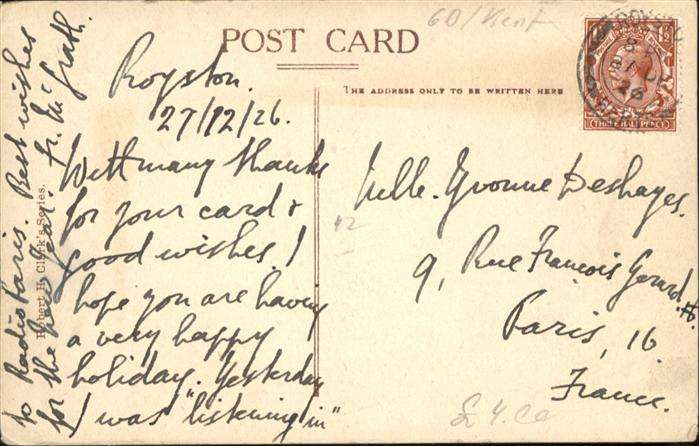 60/Kent
POST CARD
THE ADDRESS ONLY TO BE WRITTEN HERE
THREE HALF PENCE
Royston.
27/12/26.
With many thanks
for your card &
good wishes, I
hope you are having
a very happy
holiday. Yesterday
I was "listening in"
to Radio Paris. Best wishes
for the new year. Fr. McGrath.
Robert H. Clark's Series.
Mlle. Yvonne Deshayes.
9, Rue François Gérard.
Paris, 16
France.